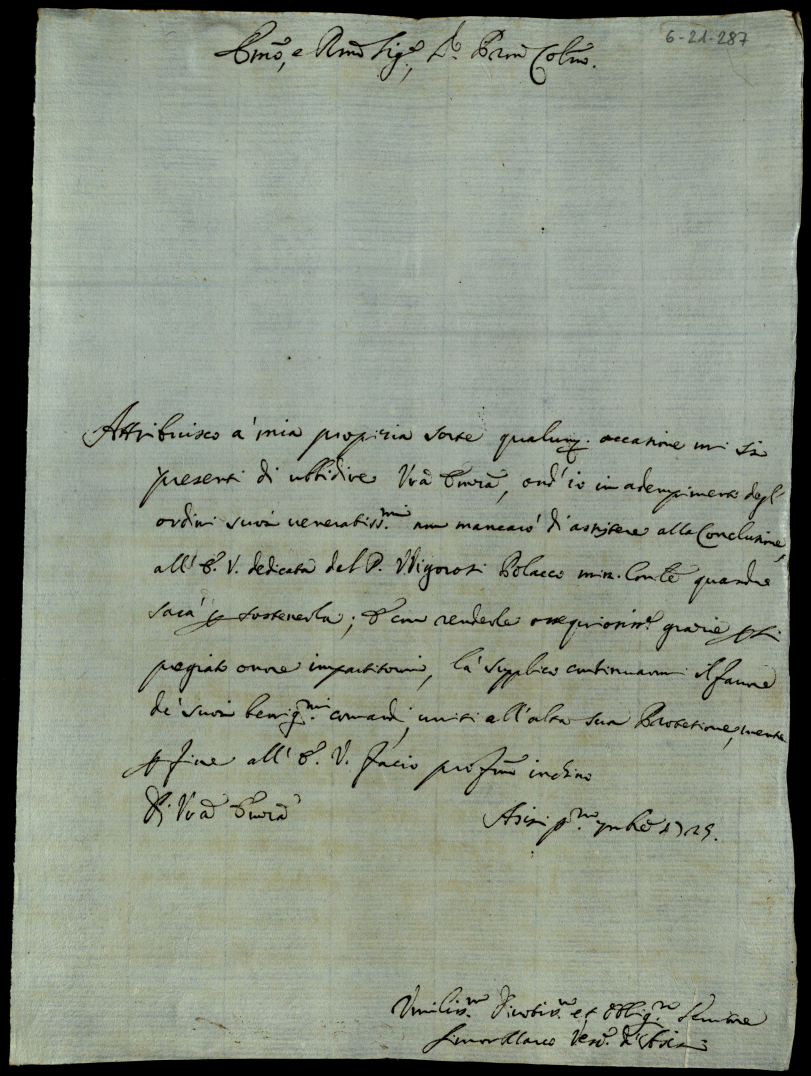 6-21-287
Emo, e Rmo Sig.r, P.ne Colmo.
Attribuisco a' mia propizia sorte qualunq. occasione mi si
presenti di ubbidire Vra Emza, ond' io in adempimento degl'
ordini suoi veneratiss.mi non mancarò d' assistere alla Conclusione,
all' E. V. dedicata dal P. Polacco min. Conle quando
sarà p sostenerla; E con renderle ossequiosiss.e grazie p si
pregiato onore impartitomi, la supplico continuarmi il favore
de' suoi benig.mi comandi, uniti all' alta sua Protetione, mentre
p fine all' E. V. facio profmo inchino
Di Vra Emza
Asisi p.mo 7mbre 1725.
Umiliss.mo Divotiss.mo et Obblig.mo Servitore
Vesc.o d' Asisi